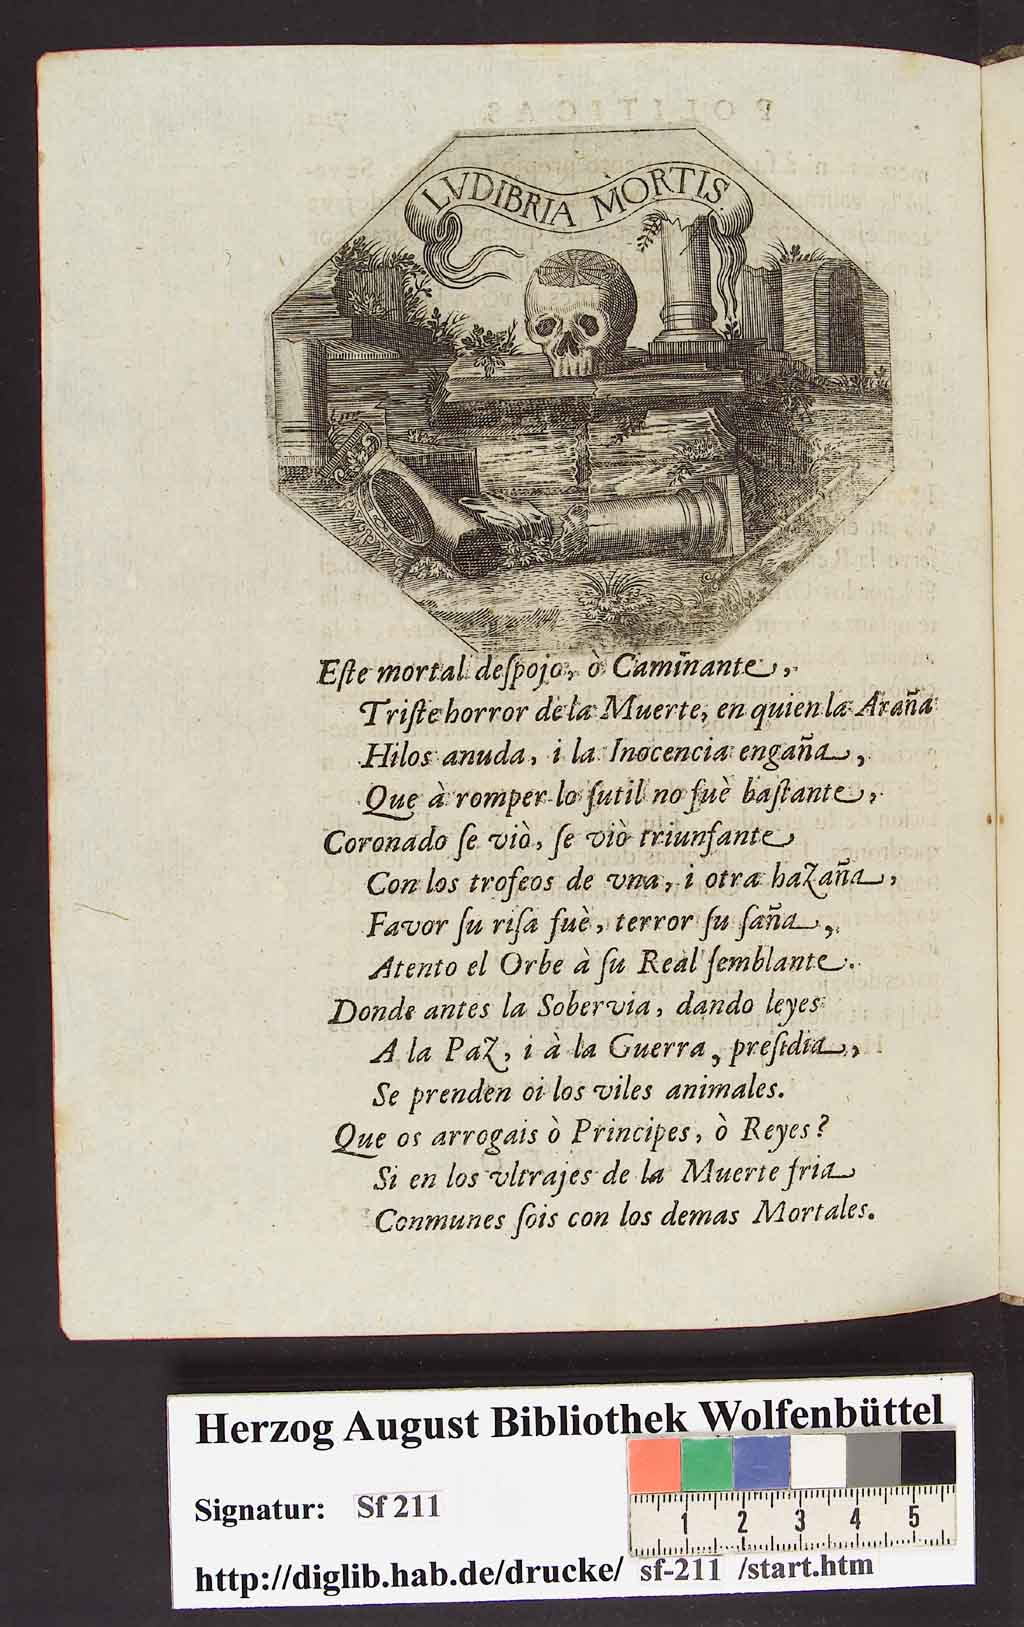 LVDIBRIA MORTIS.
Eſte mortal deſpojo, ò Caminante,
Triſte horror de la Muerte, en quien la Araña
Hilos anuda, i la Inocencia engaña,
Que à romper lo ſutil no fuè baſtante,
Coronado ſe viò, ſe viò triunfante
Con los trofeos de vna, i otra hazaña,
Favor ſu riſa fuè, terror ſu ſaña,
Atento el Orbe à ſu Real ſemblante.
Donde antes la Sobervia, dando leyes
A la Paz, i à la Guerra, preſidia,
Se prenden oi los viles animales.
Que os arrogais ò Principes, ò Reyes?
Si en los vltrajes de la Muerte fria
Conmunes ſois con los demas Mortales.
Herzog August Bibliothek Wolfenbüttel
Signatur: Sf 211
1 2 3 4 5
http://diglib.hab.de/drucke/ sf-211 /start.htm